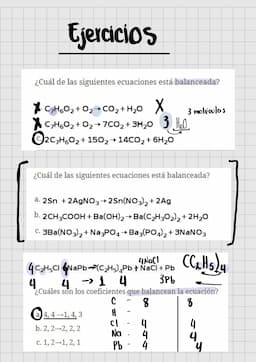 Ejercicios
¿Cuál de las siguientes ecuaciones está balanceada?
X C₇H₆O₂ + O₂ → CO₂ + H₂O X 3 moléculas
X C₇H₆O₂ + O₂ → 7CO₂ + 3H₂O 3 H₂O
C 2C₇H₆O₂ + 15O₂ → 14CO₂ + 6H₂O
¿Cuál de las siguientes ecuaciones está balanceada?
a. 2Sn + 2AgNO₃ → 2Sn(NO₃)₂ + 2Ag
b. 2CH₃COOH + Ba(OH)₂ → Ba(C₂H₃O₂)₂ + 2H₂O
c. 3Ba(NO₃)₂ + Na₃PO₄ → Ba₃(PO₄)₂ + 3NaNO₃
4NaCl (C₂H₅)₄
4 C₂H₅Cl 4 NaPb → (C₂H₅)₄Pb + NaCl + Pb
4 4 → 1 4 3Pb
¿Cuáles son los coeficientes que balancean la ecuación?
C - 8 8
a. 4, 4 → 1, 4, 3 H -
Cl - 4 4
b. 2, 2 → 2, 2, 2 Na - 4 4
c. 1, 2 → 1, 2, 1 Pb - 4 4